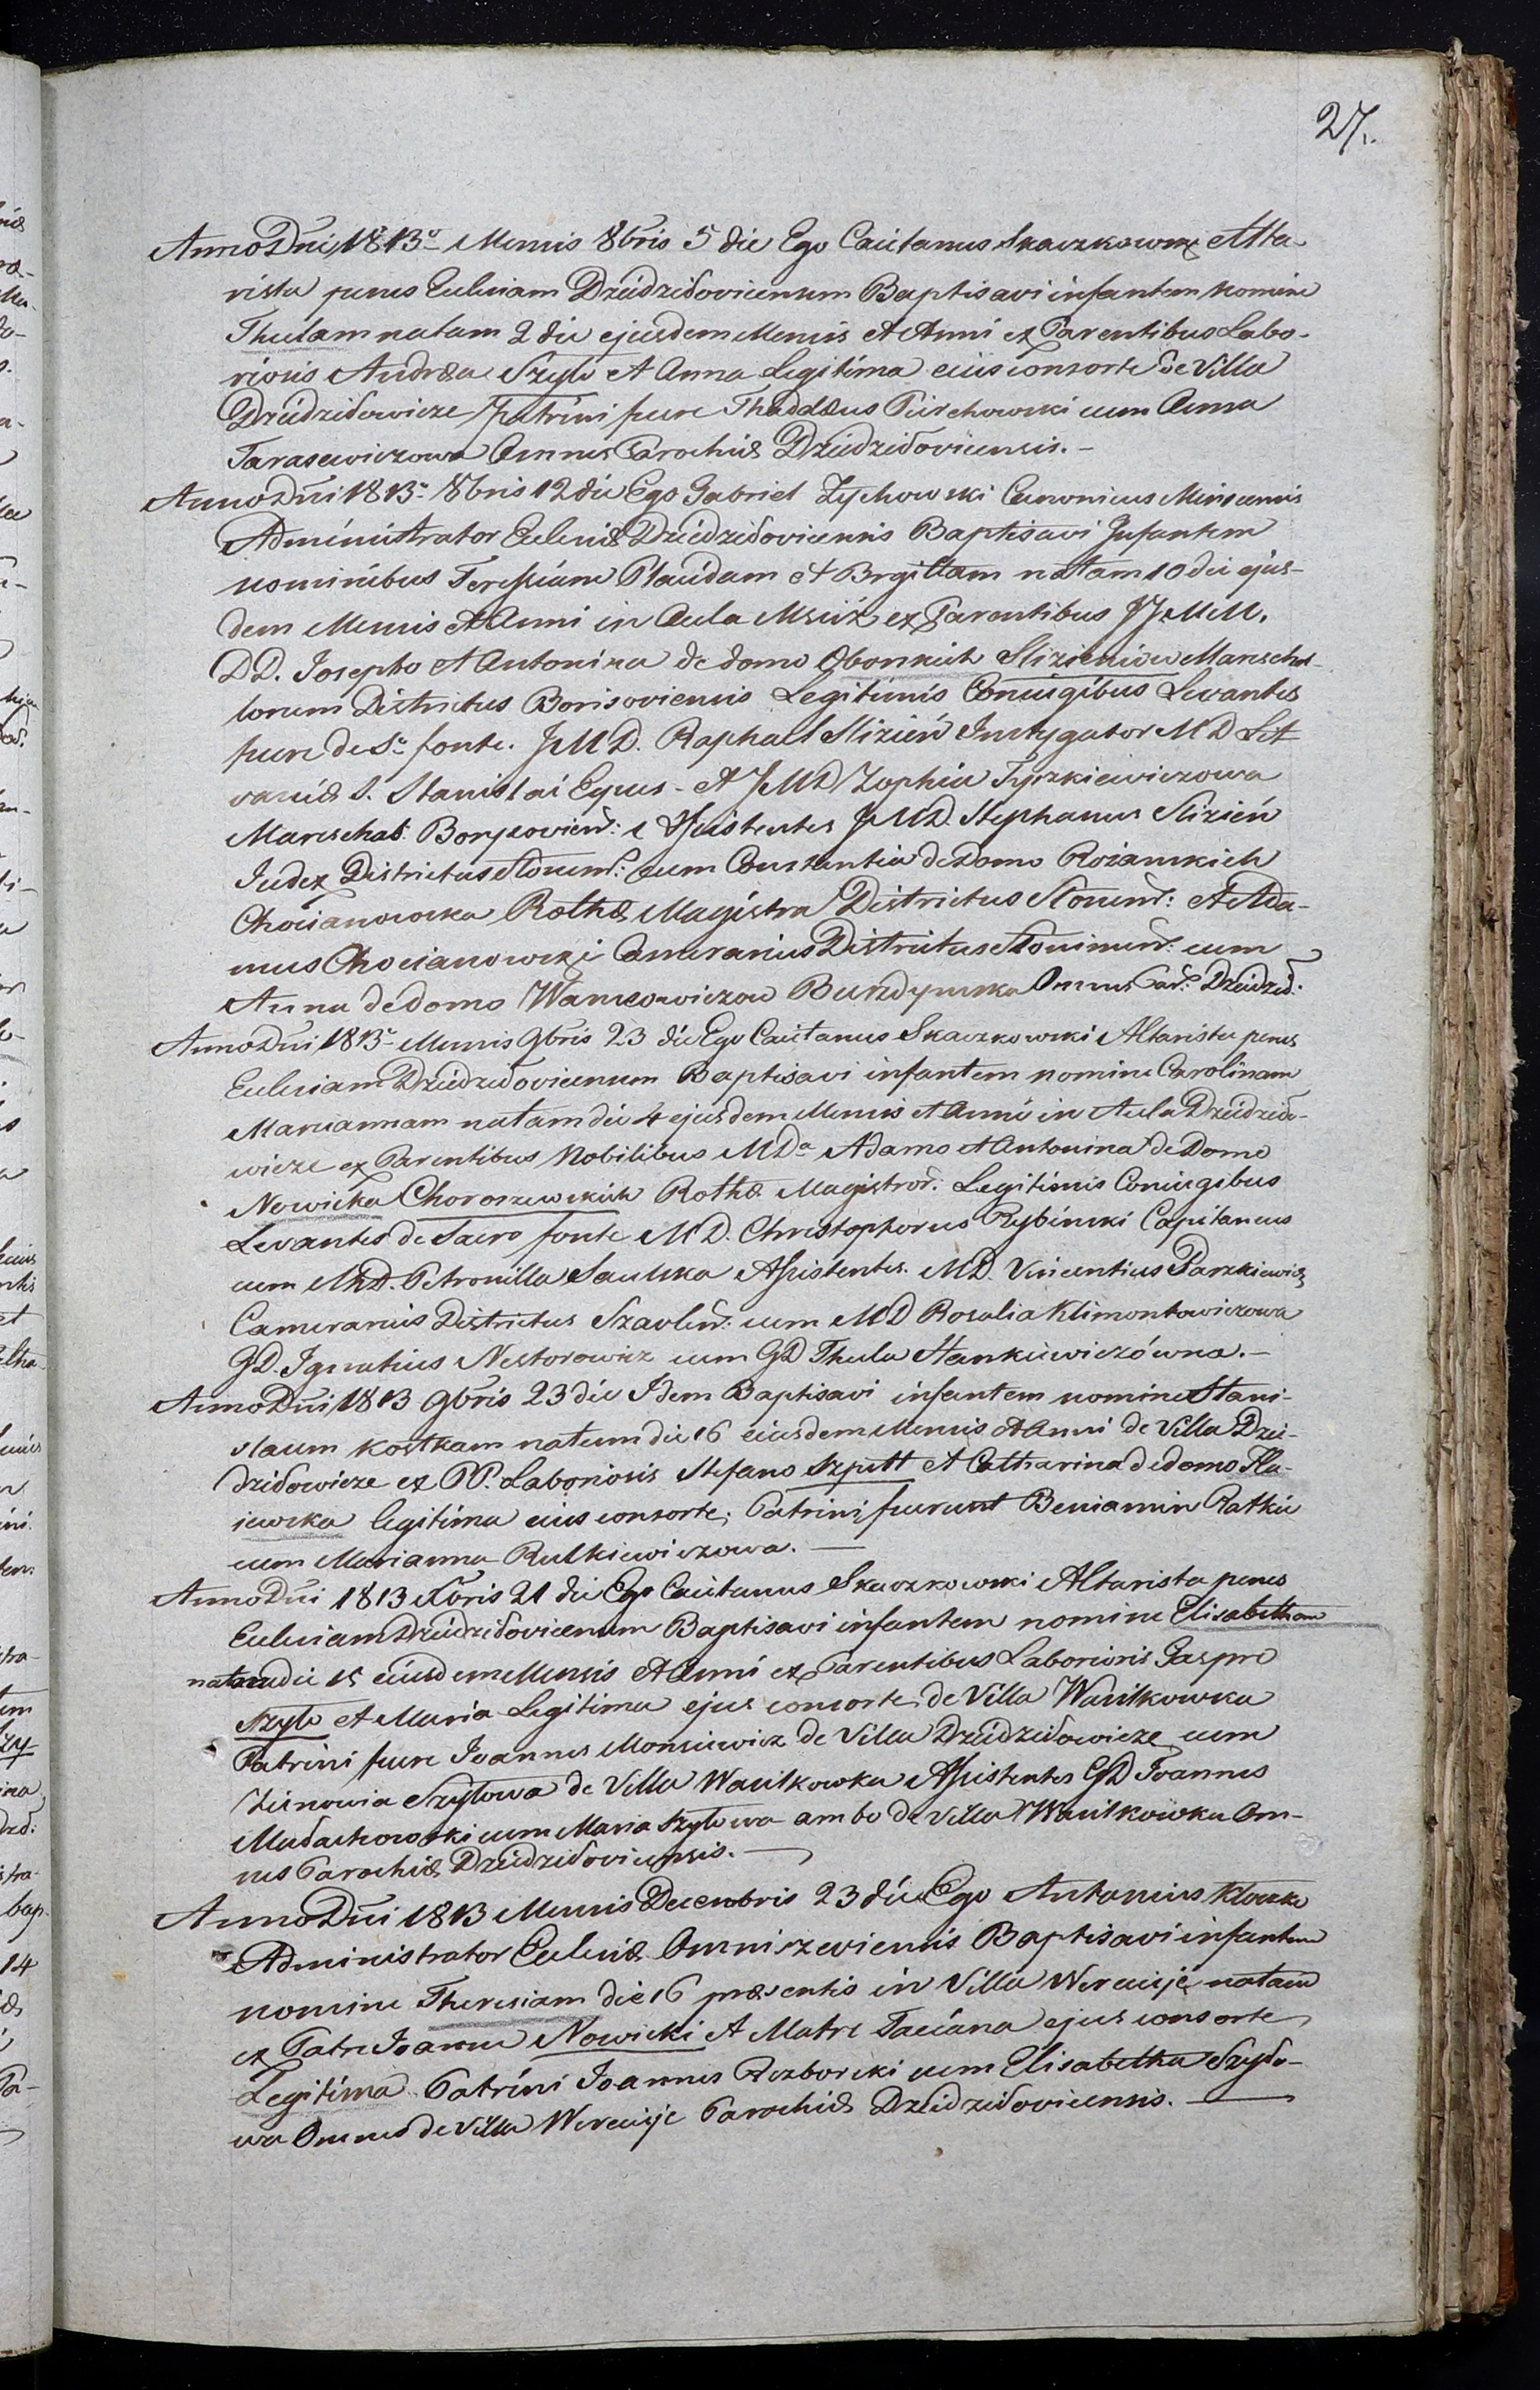 27.
Anno Dni 1813º Mensis 8bris 5 die Ego Caietanus Skaczkowski Alta-
rista penes Eclesiam Dziedziłovicensem Baptisavi infantem nomine
Theclam natam 2 die ejusdem Mensis et Anni ex Parentibus Labo-
riosis Andrea Szyło et Anna Legitima eius consorte de Villa
Dziedziłowicze Patrini fuere Thaddæus Pierchowski cum Anna
Tarasewiczowa Omnes Parochiæ Dziedziłovicensis.-
Anno Dni 1813º 8bris 12 die Ego Gabriel Zychowski Canonicus Minscensis
Administrator Eclesiæ Dziedziłovicensis Baptisavi Infantem
nominibus Teressiam Placidam et Brgittam natam 10 die ejus-
dem Mensis et Anni in Aula Mściż ex Parentibus JJ. M M.
DD. Josepho et Antonina de domo Oborskich Slizieniow Mareschal-
lorum Districtus Borisoviensis Legitimis Coniugibus Levantes
fuere de S. fonte. JMD. Raphael Slizień Instygator MD Lit
vaniæ S. Stanislai Eques - et JMD Zophia Tyszkiewiczowa
Mareschal: Borysovien: Assistentes JMD. Stephanus Slizień
Judex Districtus Slonimn: cum Constantia de Domo Roianskich
Chocianowska Rothæ Magistra Districtus Slonimn: et Ada-
mus Chocianowski Camerarius Districtus Slonimn: cum
Anna de domo Wankowiczow Burdzymska Omnes Par: Dziedził:
Anno Dni 1813º Mensis 9bris 23 die Ego Caietanus Skaczkowski Altarista penes
Eclesiam Dziedziłovicensem Baptisavi infantem nomine Carolinam
Mariannam natam die 4 ejusdem Mensis et Anni in Aula Dziedziło-
wicze ex Parentibus Nobilibus MDª Adamo et Antonina de Domo
Nowicka Choroszewskich Rothæ Magistror: Legitimis Coniugibus
Levantes de Sacro fonte MD. Christophorus Rybinski Capitaneus
cum MD. Petronilla Saulska Assistentes. MD. Vincentius Parzkiewicz
Camerarius Districtus Szavlen: cum MD Rosalia Klimontowiczowa
GD. Ignatius Nestorowicz cum GD Thecla Hankiewiczówna.-
Anno Dni 1813 9bris 23 die Idem Baptisavi infantem nomine Stani-
slaum kostkam natum die 16 eiusdem Mensis et Anni de Villa Dzie-
dziłowicze ex PP. Laboriosis Stefano Szpitt et Catharina de domo Ha-
iewska legitima eius consorte; Patrini fuerunt Beniamin Ratkie
cum Marianna Rutkiewiczowa. —
Anno Dni 1813 Xbris 21 die Ego Caietanus Skaczkowski Altarista penes
Eclesiam Dziedziłovicensem Baptisavi infantem nomine Elisabetham
natam die 15 eiusdem Mensis et Anni ex Parentibus Laboriosis Gaspro
Szyło et Maria Legitima ejus consorte de Villa Wasilkowka
Patrini fuere Joannes Monsiewicz de Villa Dziedziłowicze cum
Zienowia Szyłowa de Villa Wasilkowka Assistentes GD Joannes
Małachowski cum Maria Szyłowa ambo de Villa Wasilkowka Om-
nes Parochiæ Dziedziłovicensis. —
Anno Dni 1813 Mensis Decembris 23 die Ego Antonius Kloczko
Administrator Eclesiæ Omniszeviensis Baptisavi infantem
nomine Theresiam die 16 præsentis in Villa Wereicije natam
ex Patre Joanne Nowicki et Matre Taciana ejus consorte
Legitima Patrini Joannes Rozborski cum Elisabetha Szyło-
wa Omnes de Villa Wereicije Parochiæ Dziedziłovicensis. —